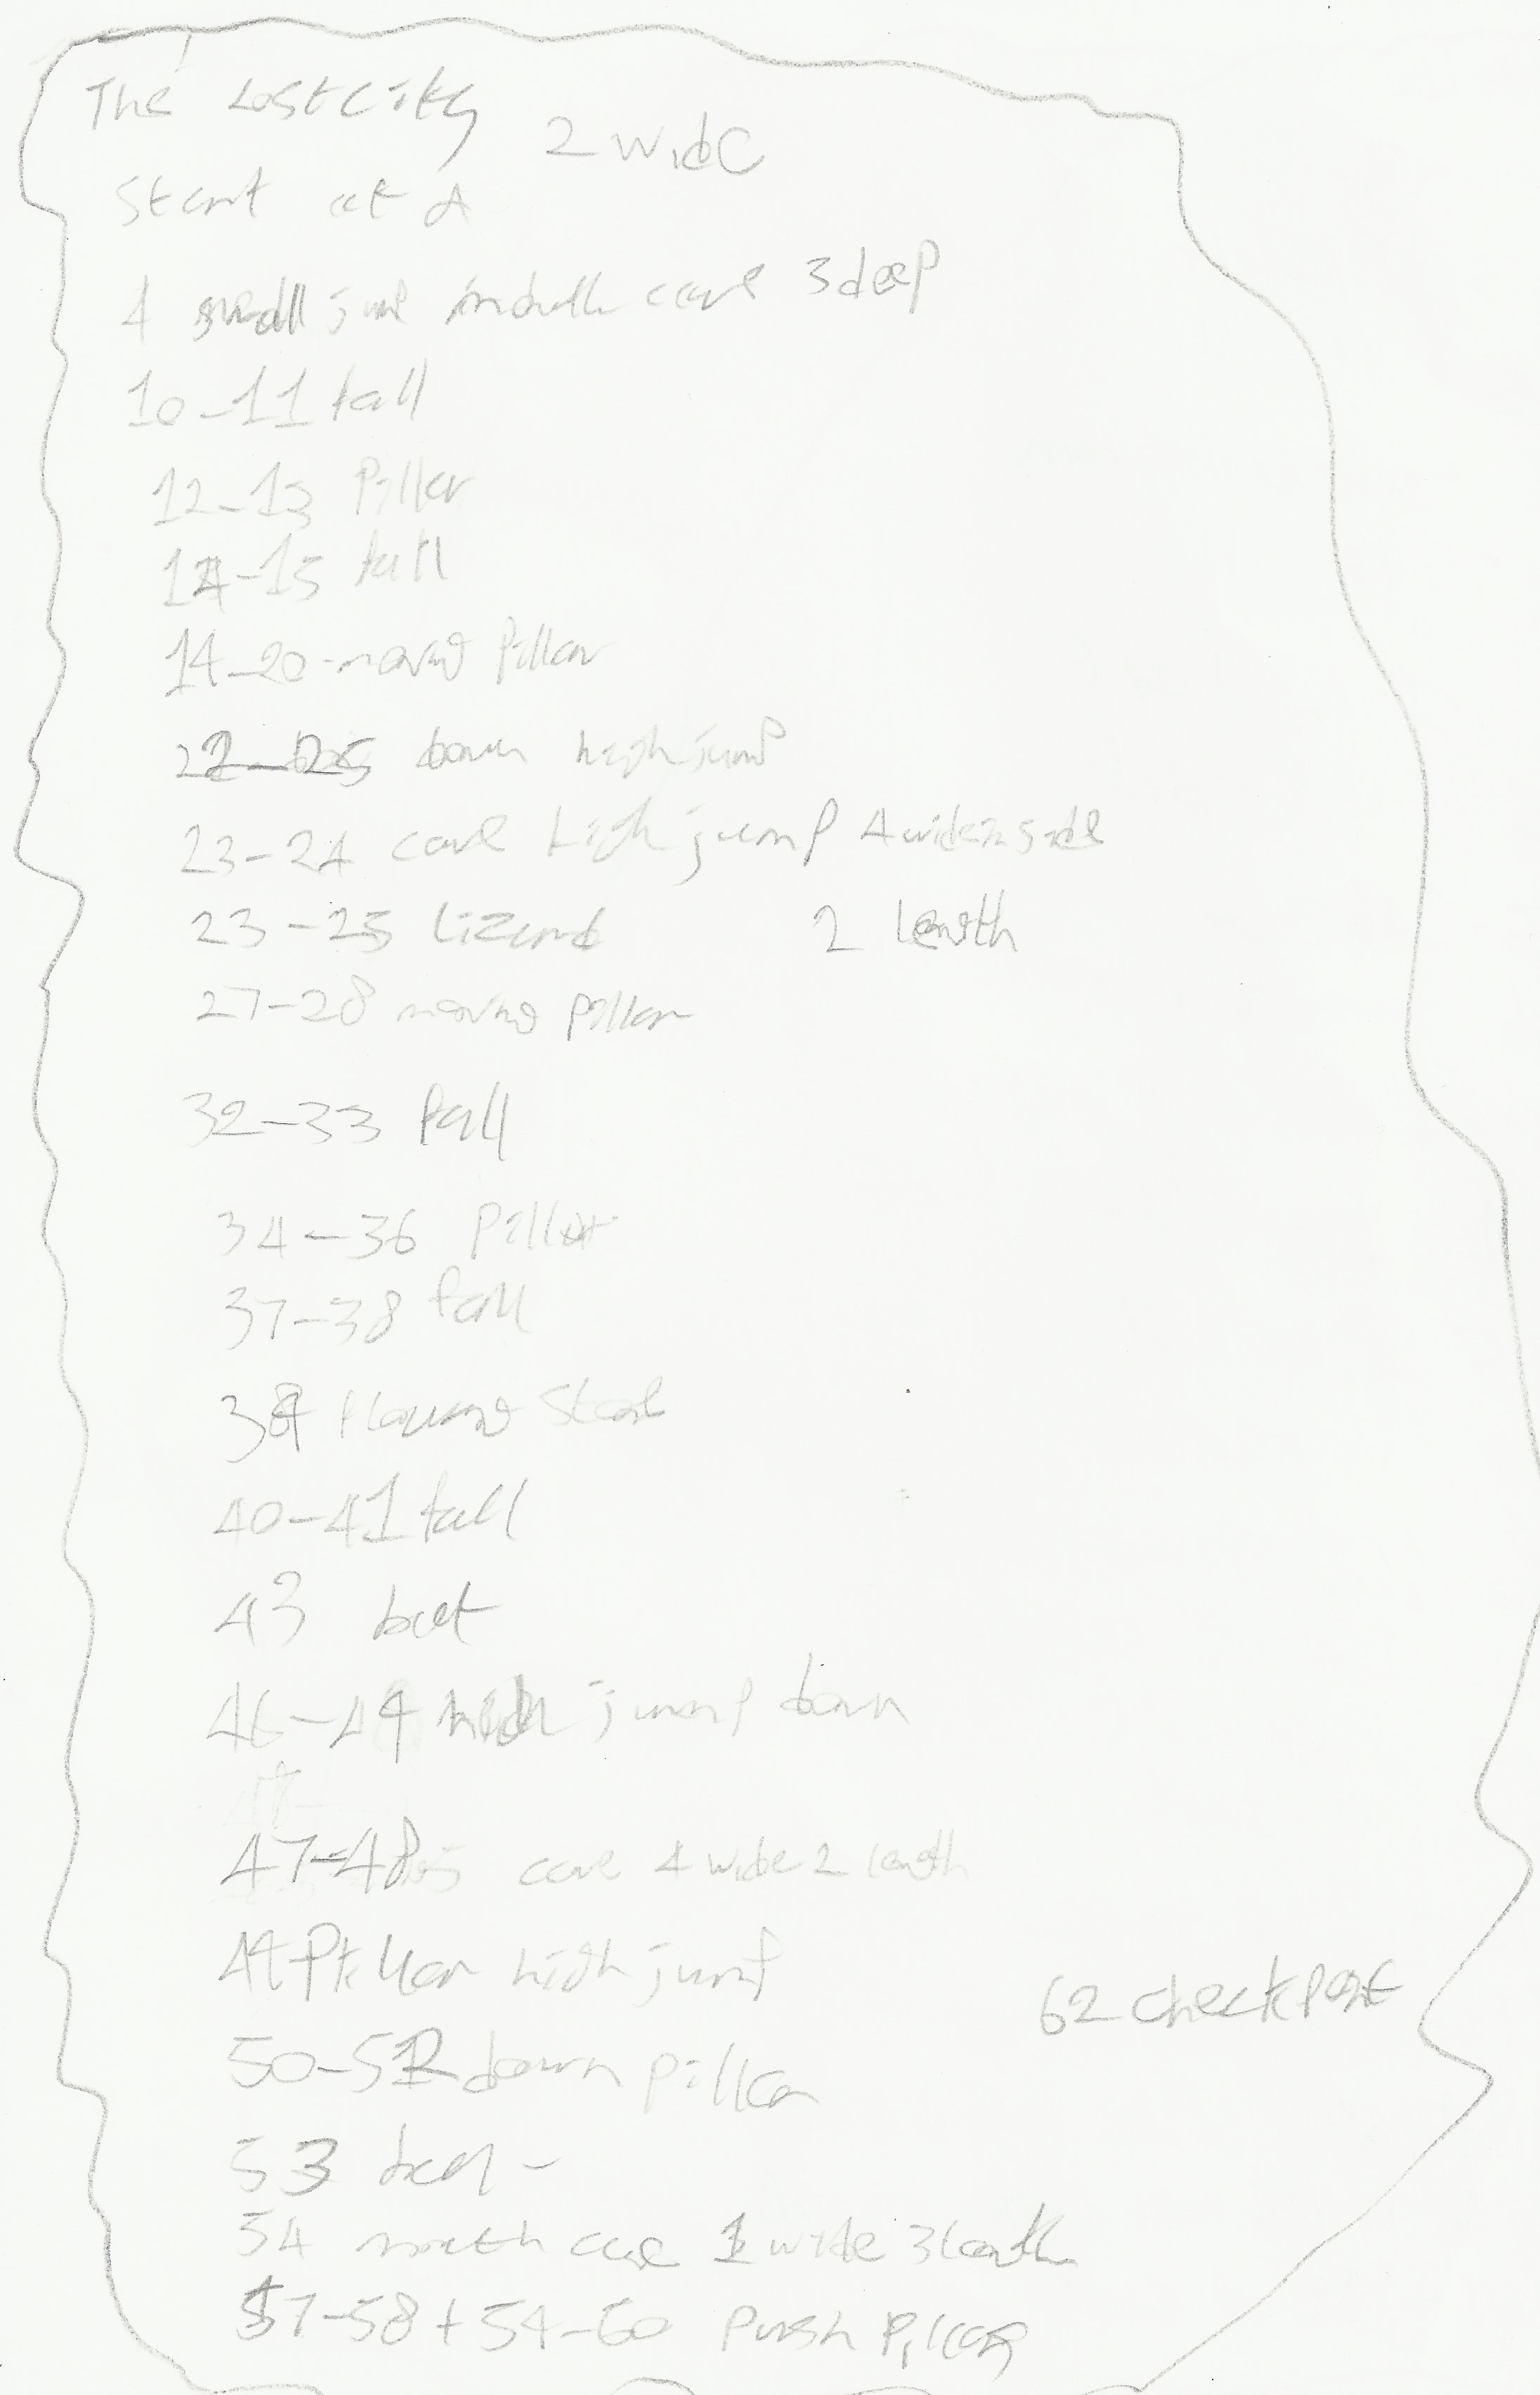 The Lost City
2 wide
Start at A
4 small jump middle cave 3 deep
10-11 fall
12-13 Pillar
14-15 fall
14-20-moving Pillar
22-25 down high jump
23-24 cave high jump 4 wide inside
23-25 Lizard 2 length
27-28 moving pillar
32-33 fall
34-36 pillar
37-38 fall
38
40-41 fall
43 bat
46-49 high jump down
47-48 cave 4 wide 2 length
49 Pillar high jump
62 checkpoint
50-52 down pillar
53 bat -
54 cave 1 wide 3 length
57-58 + 59-60 push Pillar